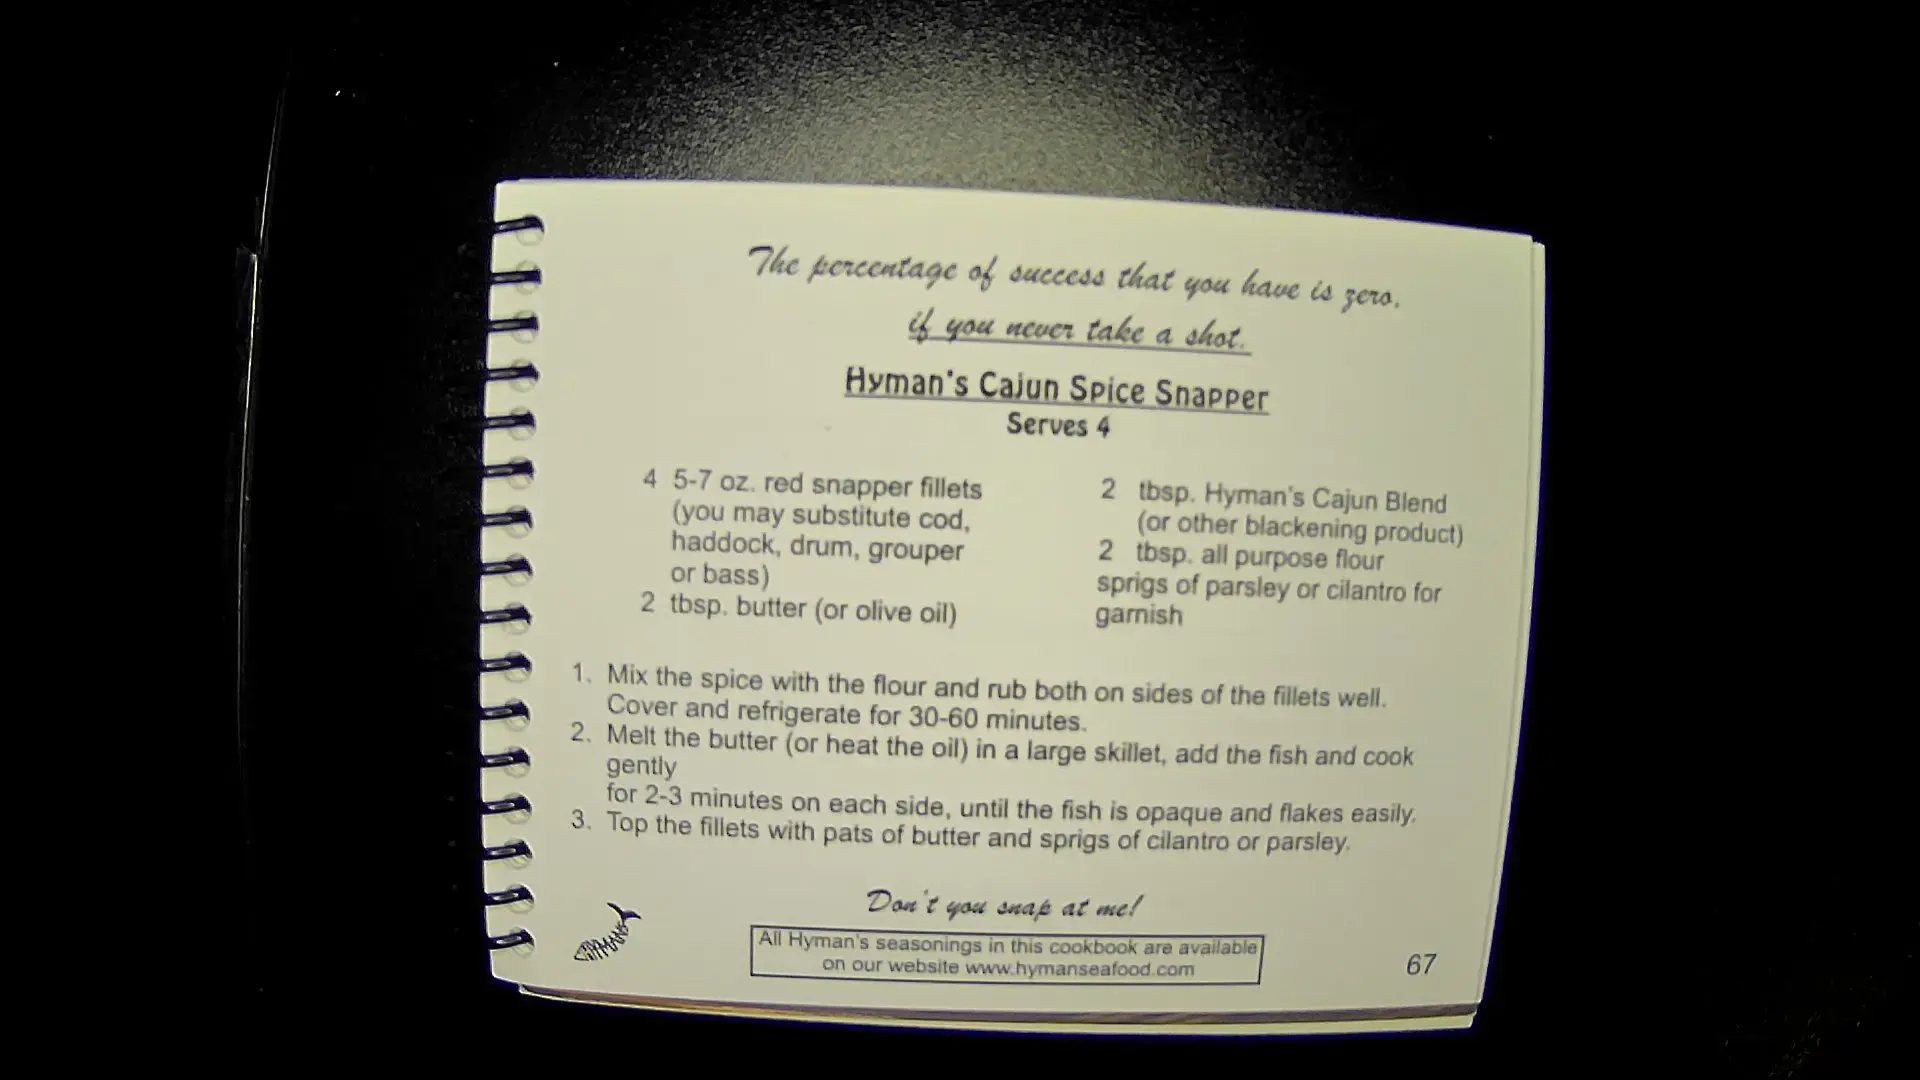 The percentage of success that you have is zero,
if you never take a shot.
Hyman's Cajun Spice Snapper
Serves 4
4 5-7 oz. red snapper fillets
(you may substitute cod,
haddock, drum, grouper
or bass)
2 tbsp. butter (or olive oil)
2 tbsp. Hyman's Cajun Blend
(or other blackening product)
2 tbsp. all purpose flour
sprigs of parsley or cilantro for
garnish
1. Mix the spice with the flour and rub both on sides of the fillets well.
Cover and refrigerate for 30-60 minutes.
2. Melt the butter (or heat the oil) in a large skillet, add the fish and cook
gently
for 2-3 minutes on each side, until the fish is opaque and flakes easily.
3. Top the fillets with pats of butter and sprigs of cilantro or parsley.
Don't you snap at me!
HYMANS
All Hyman's seasonings in this cookbook are available
on our website www.hymanseafood.com
67